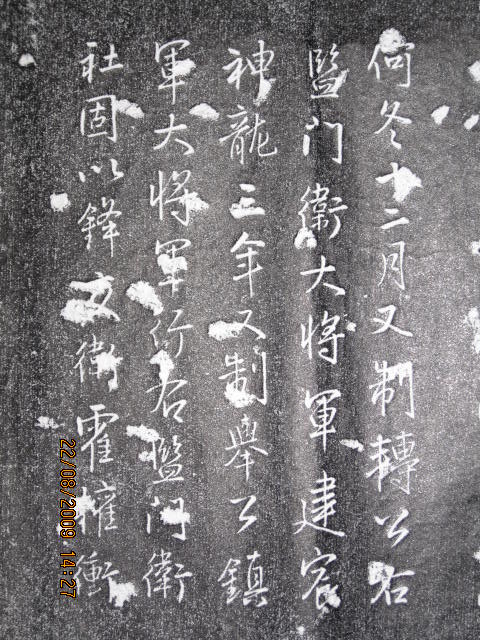 何冬十二月又制轉公右
監门衛大将軍建宸
神龍三年又制舉公鎮
軍大将軍行右監门衛
社固以鋒文衛霍摧衝
22/08/2009 14:27